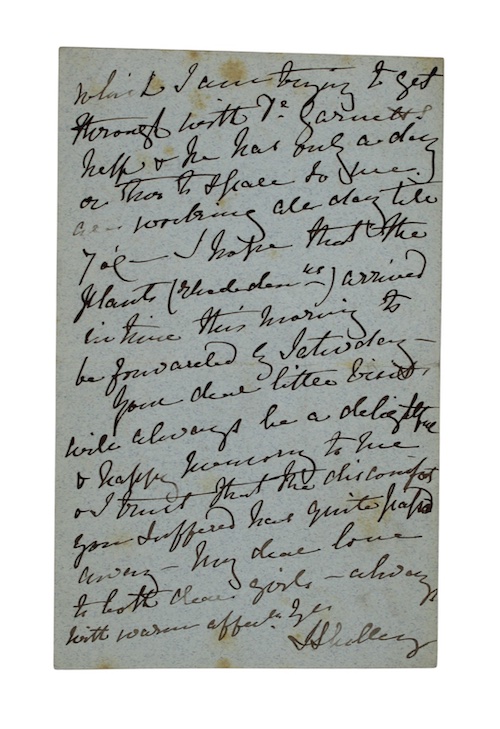 which I am trying to get
through with Dr. Garnett's
help & he has only a day
or two to spare so we
are working all day till
7 o'c— I hope that the
plants (rhododenns) arrived
in time this morning to
be forwarded by Saturday—
Your dear little visit
will always be a delightful
& happy memory to me
& I trust that the discomfort
you suffered has quite passed
away— My dear love
to both dear girls— always
with warm affecte. Yrs
J Shelley